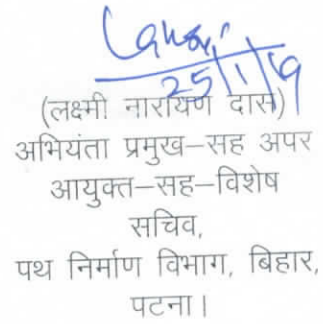 25/1/19
(लक्ष्मी नारायण दास)
अभियंता प्रमुख–सह अपर
आयुक्त–सह–विशेष
सचिव,
पथ निर्माण विभाग, बिहार,
पटना।